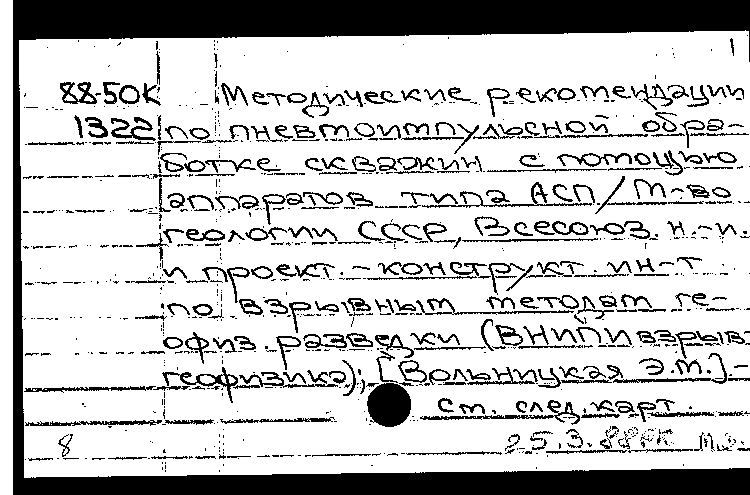 1
88-50К Методические рекомендации
1322 по пневмоимпульсной обра-
ботке скважин с помощью
аппаратов типа АСП/М-во
геологии СССР, Всесоюз. н.-и.
и проект.-конструкт. ин-т
по взрывным методам ге-
офиз. разведки (ВНИПИвзрыв-
геофизика); [Вольницкая Э.М.]-
см. след. карт.
8 25.3.88